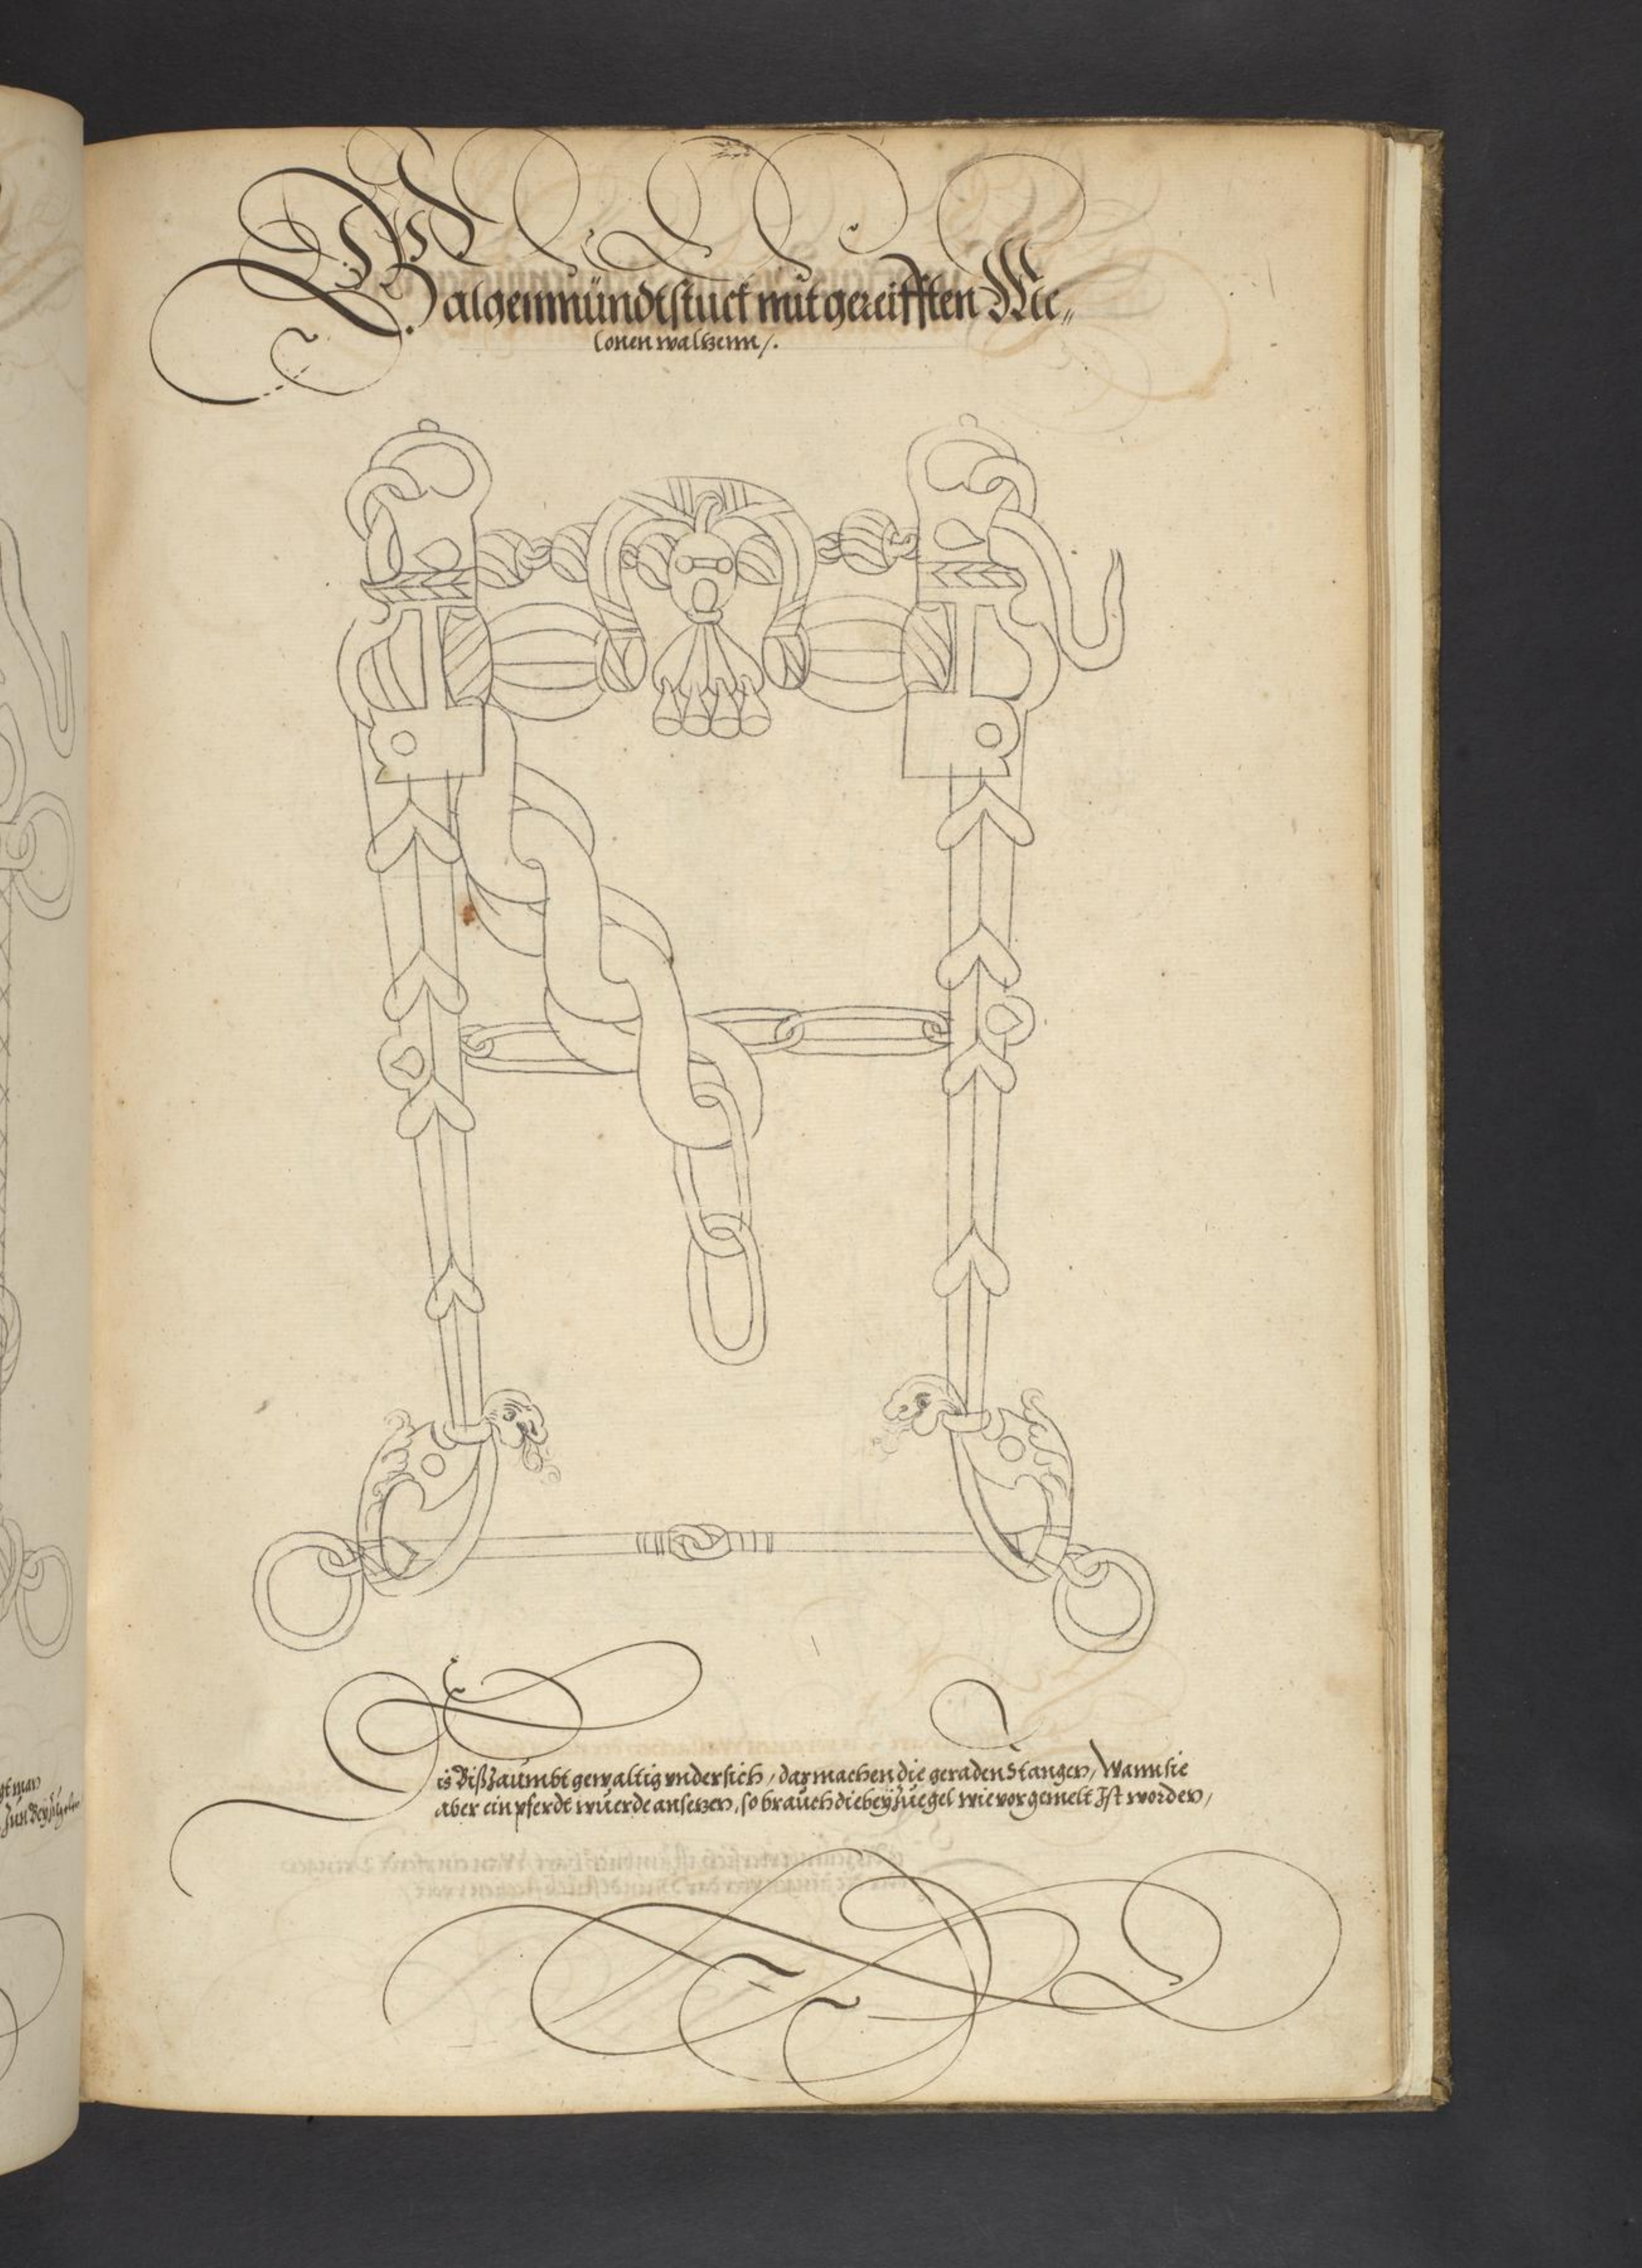 Galgenmündtstuck mit gereifften Me„
lonen waltzenn /.
Dis Biß Zaumbt gewaltig undersich / das machen die geraden Stangen / Wann sie
aber ein pferdt wuerde ansetzen, so brauch die bey Zuegel wie vor gemelt Ist worden /
gt man